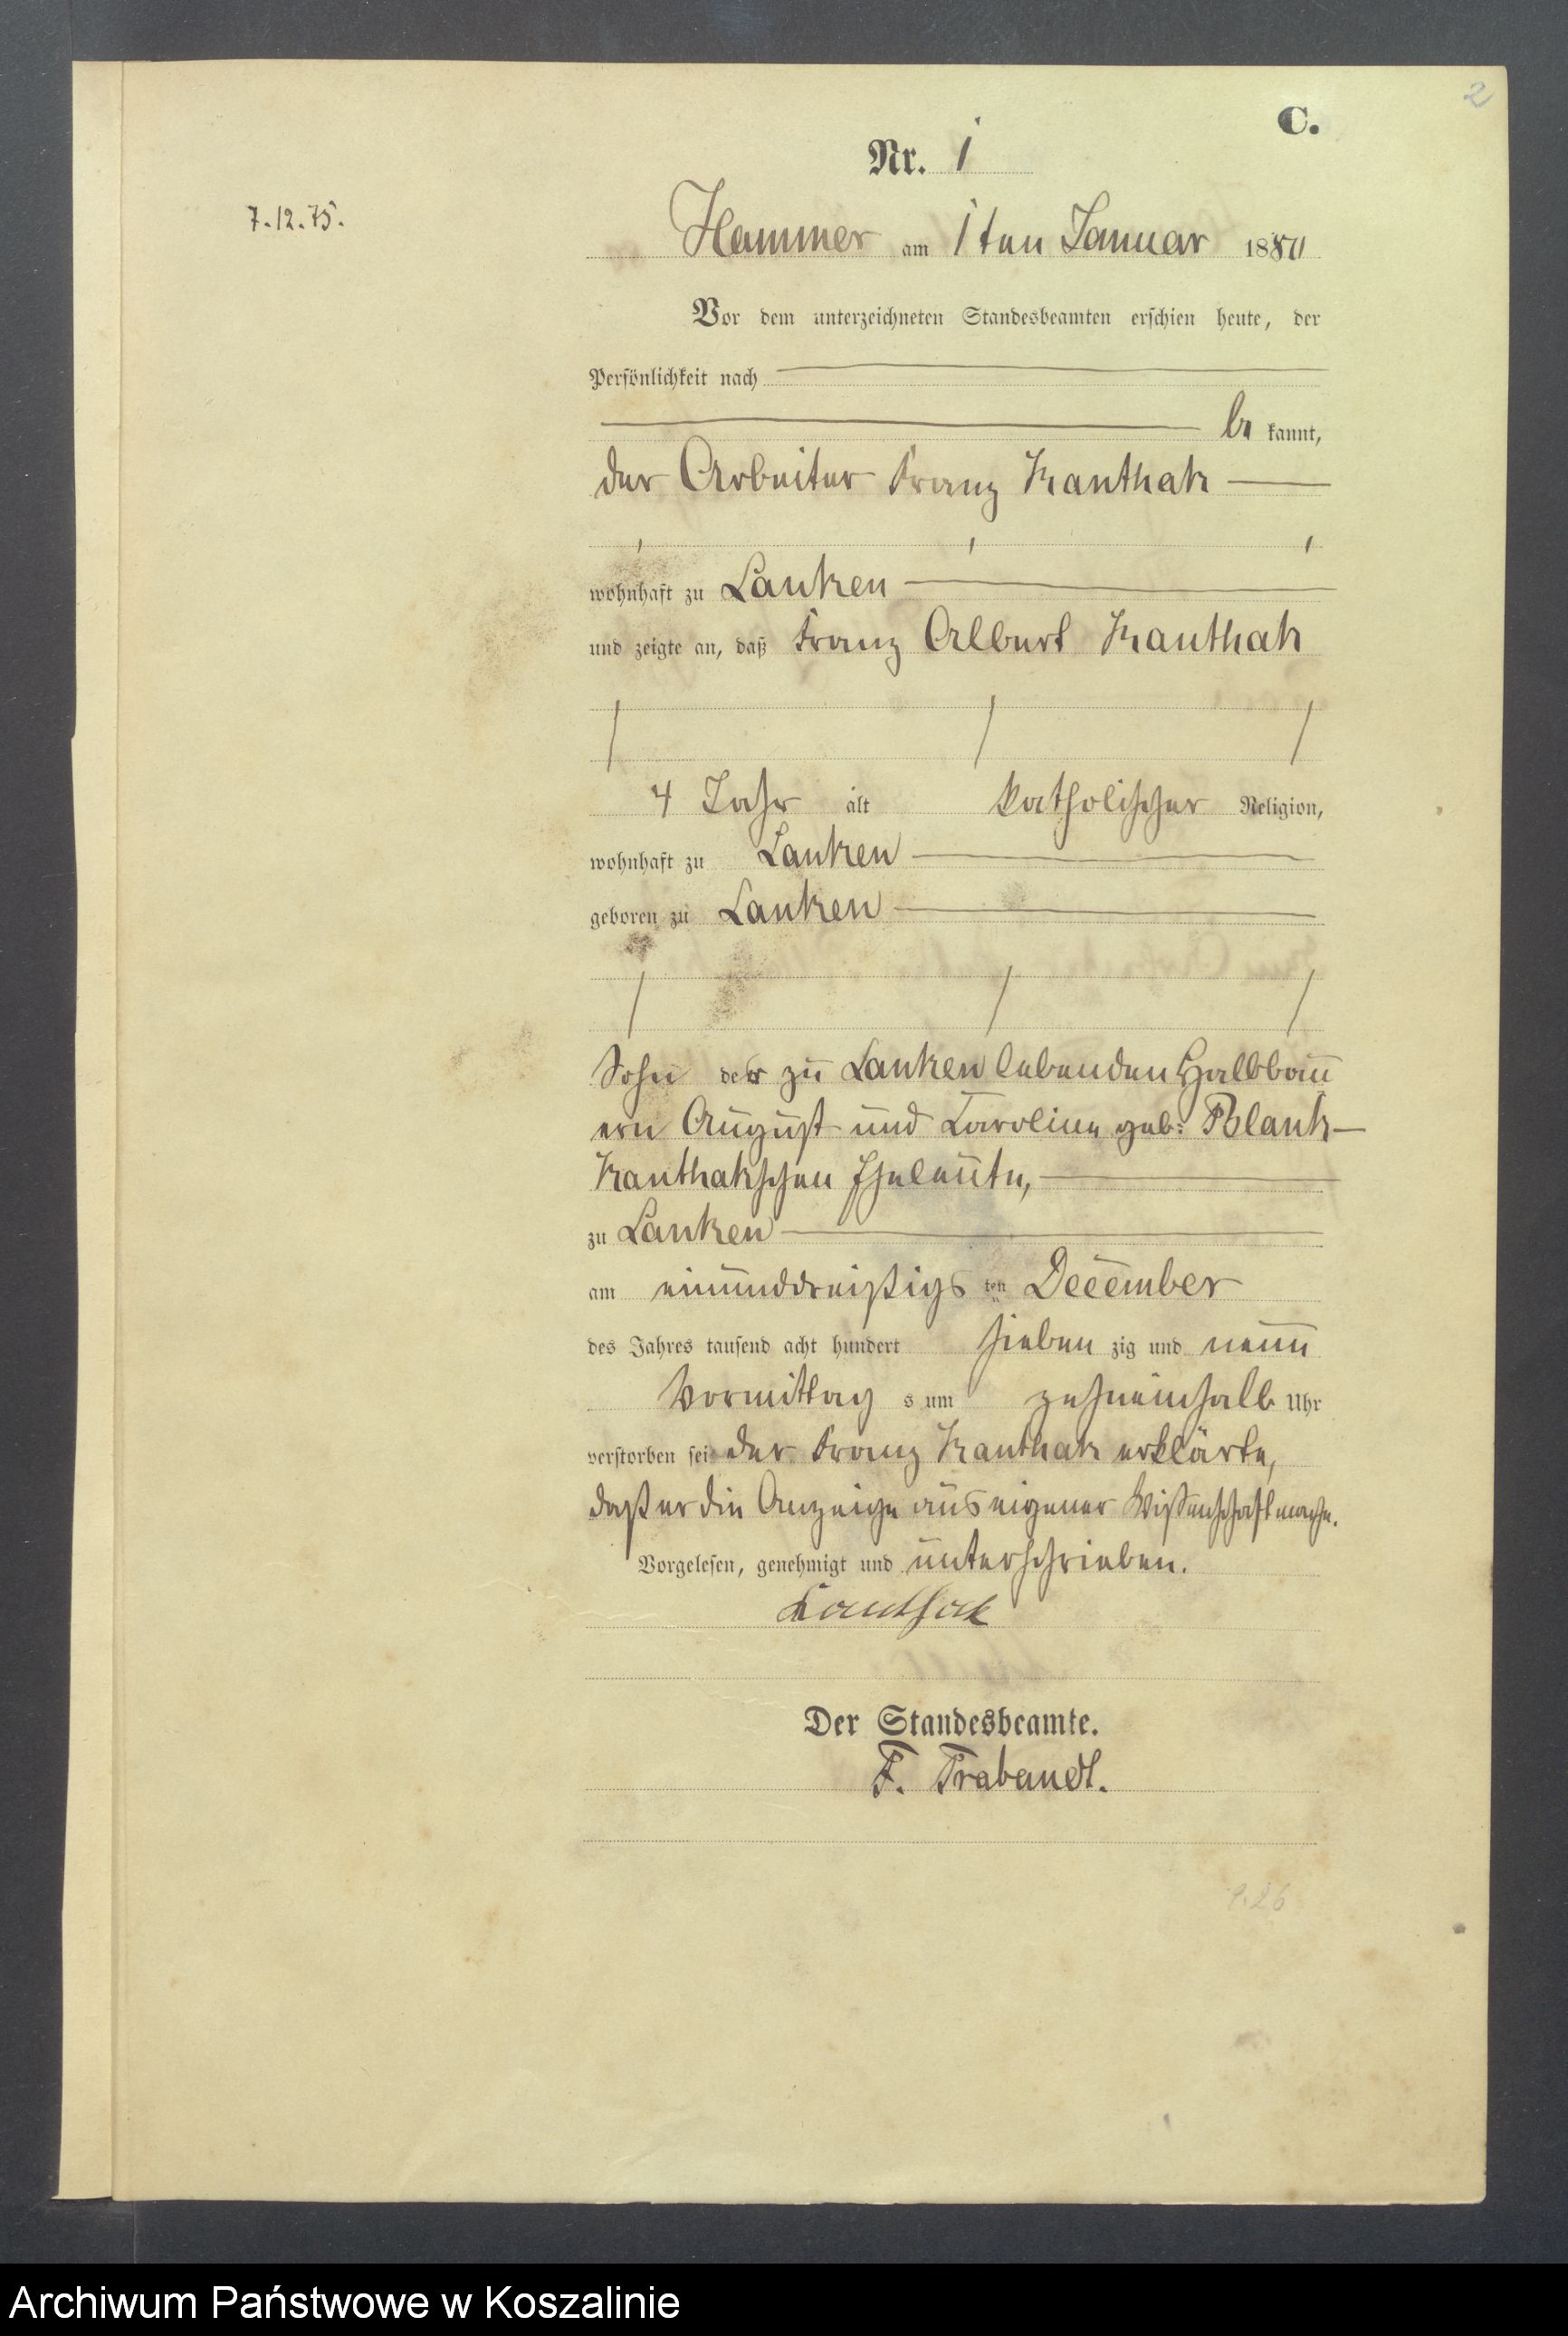 2
C.
Nr. 1
7.12.75.
Hammer am 1ten Januar 1880
Vor dem unterzeichneten Standesbeamten erschien heute, der
Persönlichkeit nach
be kannt,
der Arbeiter Franz Kanthak
wohnhaft zu Lanken
und zeigte an, daß Franz Albert Kanthak
4 Jahr alt katholischer Religion,
wohnhaft zu Lanken
geboren zu Lanken
Sohn der zu Lanken lebenden Halbbau
ern August und Caroline geb: Polank
Kanthakschen Eheleute,
zu Lanken
am einunddreißigs ten December
des Jahres tausend acht hundert sieben zig und neun
Vormittag s um zehneinhalb Uhr
verstorben sei der Franz Kanthak erklärte,
daß er die Anzeige aus eigener Wissenschaft mache.
Vorgelesen, genehmigt und unterschrieben.
Kanthak
Der Standesbeamte.
F. Trabandt.
Archiwum Państwowe w Koszalinie